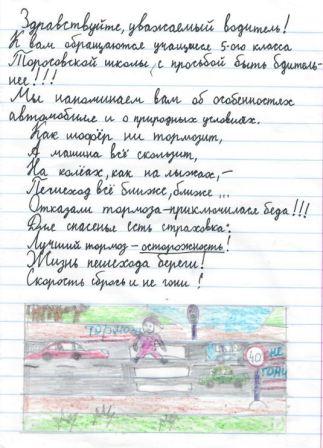 Здравствуйте, уважаемый водитель!
К вам обращаются учащиеся 5-ого класса
Торосовской школы, с просьбой быть бдитель-
нее!!!
Мы напоминаем вам об особенностях
автомобиле и о природных условиях.
Как шофёр ни тормозит,
А машина всё скользит,
На колёсах, как на лыжах, –
Пешеход всё ближе, ближе...
Отказали тормоза – приключилась беда!!!
Для спасенье есть страховка:
Лучший тормоз – осторожность!
Жизнь пешехода береги!
Скорость сбрось и не гони!
40
НЕ
ГОНИ